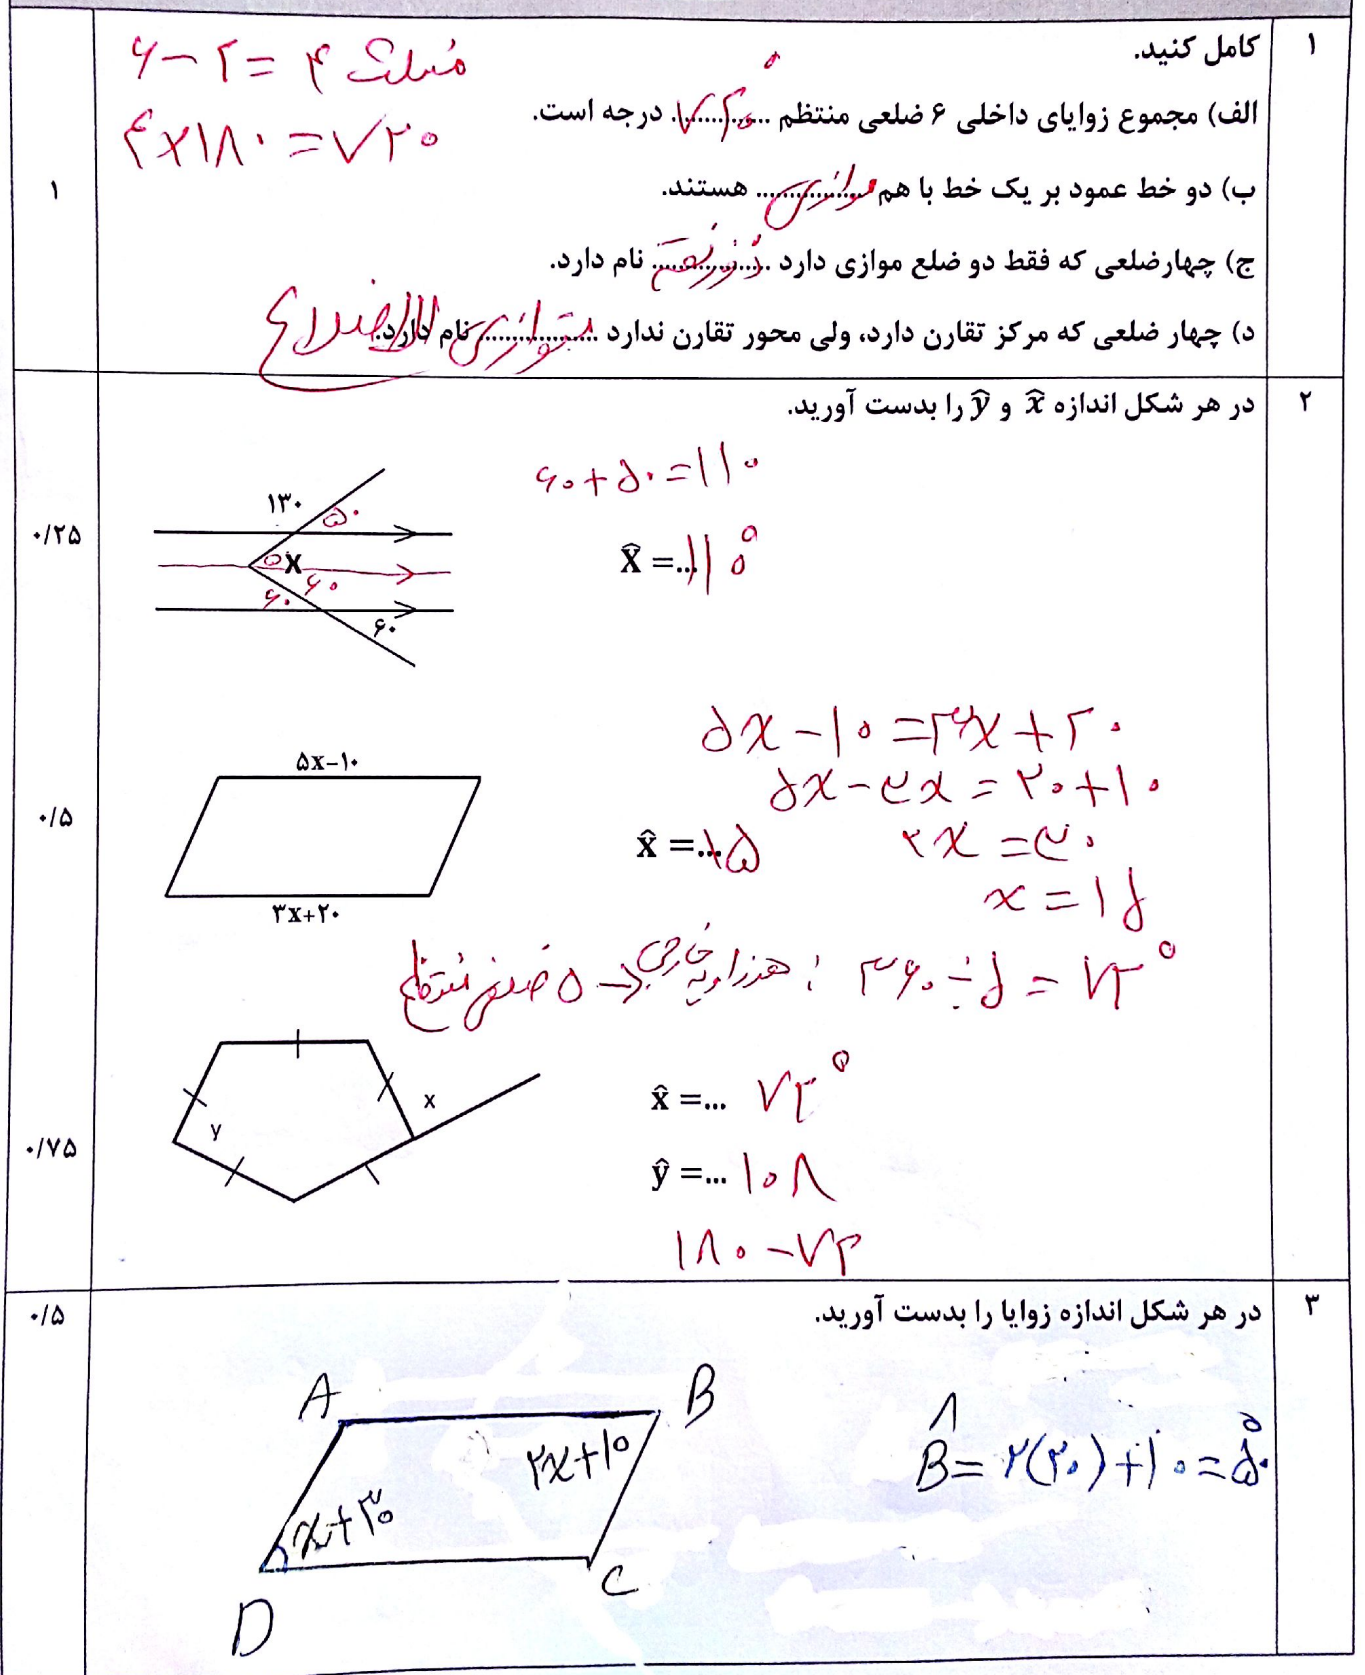 ۱
کامل کنید.
۶-۲=۴ مثلث
الف) مجموع زوایای داخلی ۶ ضلعی منتظم ۷۲۰° درجه است.
۴×۱۸۰=۷۲۰
ب) دو خط عمود بر یک خط با هم موازی هستند.
۱
ج) چهارضلعی که فقط دو ضلع موازی دارد ذوزنقه نام دارد.
د) چهار ضلعی که مرکز تقارن دارد، ولی محور تقارن ندارد متوازی الاضلاع نام دارد.
۲
در هر شکل اندازه x̂ و ŷ را بدست آورید.
۶۰+۵۰=۱۱۰
۱۳۰ ۵۰
۰/۲۵
X̂ =...۱۱۰°
۵۰ X
۶۰
۶۰
۶۰
۵x-۱۰=۳x+۲۰
۵x-۱۰
۵x-۳x=۲۰+۱۰
۰/۵
x̂ =...۱۵
۲x=۳۰
x=۱۵
۳x+۲۰
۵ ضلعی منتظم → هر زاویه خارجی: ۳۶۰÷۵=۷۲°
x̂ =... ۷۲°
x
y
۰/۷۵
ŷ =... ۱۰۸
۱۸۰-۷۲
۳
در هر شکل اندازه زوایا را بدست آورید.
۰/۵
A B
۲x+۱۰
B̂= ۲(۲۰)+۱۰=۵۰°
x+۳۰
D C